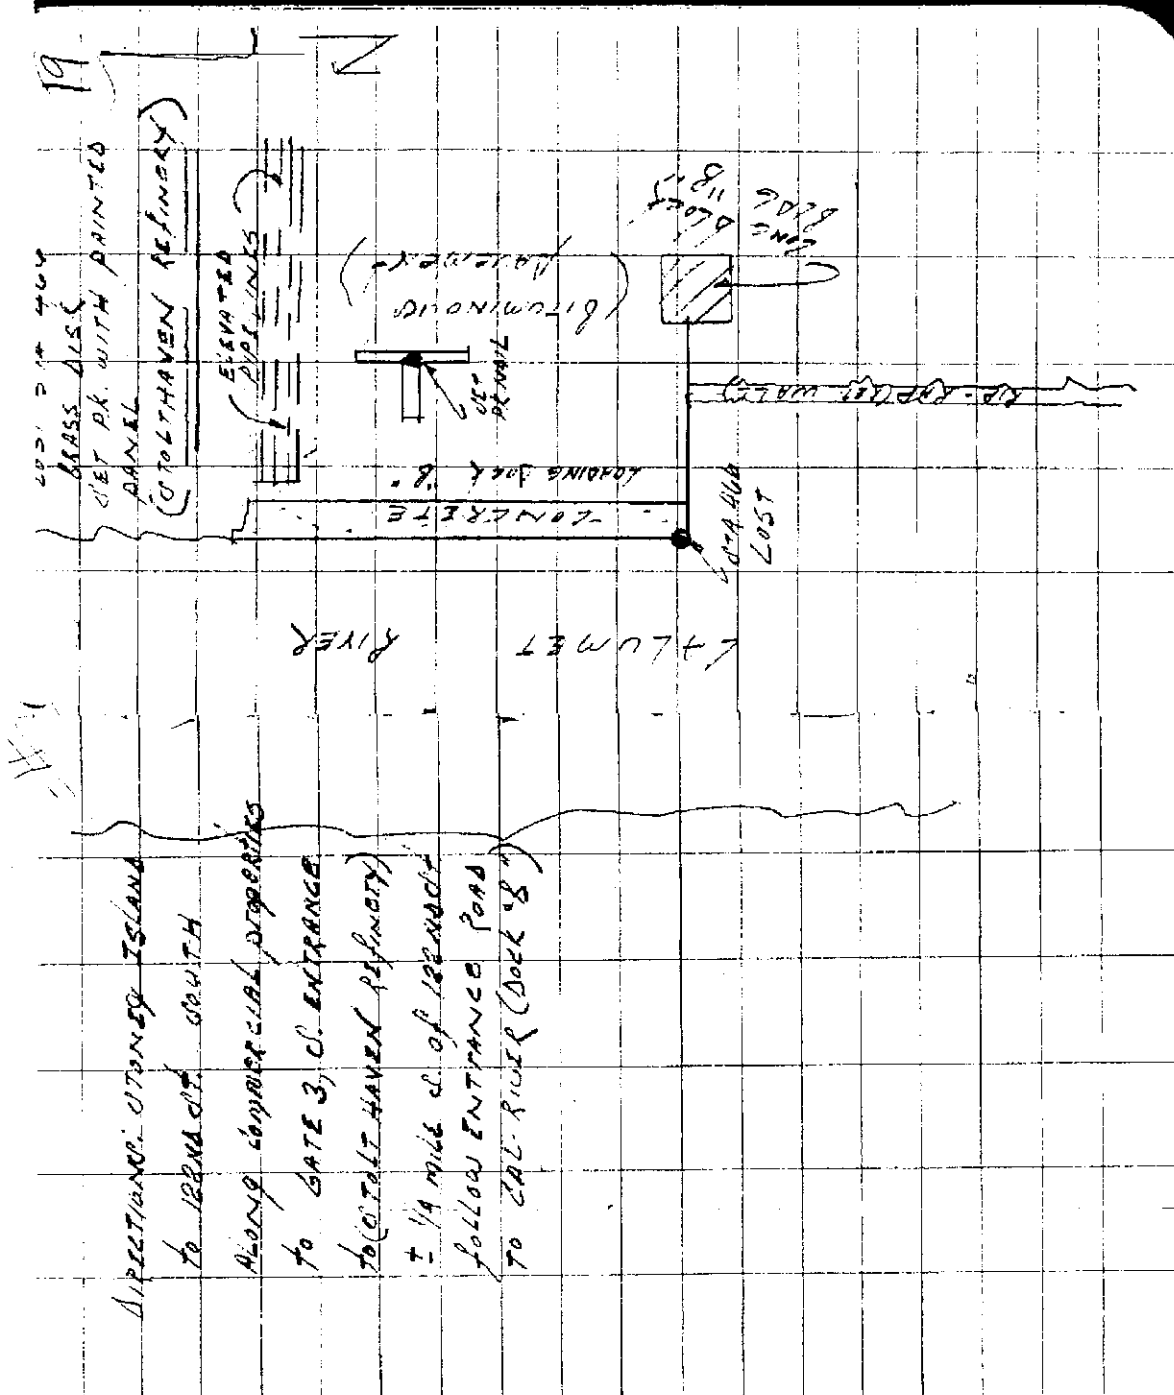 19
LOST STA 466
BRASS DISC
SET P.K. WITH PAINTED
PANEL
(STOLTHAVEN REFINERY)
ELEVATED
PIPE LINES
(BITUMINOUS
PAVEMENT)
SET
PK NAIL
CONC BLOCK
BLDG "B"
RIP-RAP (WALL)
LOADING DOCK "B"
CONCRETE
STA. 466
LOST
CALUMET RIVER
N
DIRECTIONS: STONEY ISLAND
to 122ND ST. SOUTH
ALONG COMMERCIAL properties
to GATE 3, S. ENTRANCE
to (STOLT HAVEN REfiNERY)
± 1/4 MILE S. of 122ND ST
follow ENTRANCE ROAD
TO CAL-RIVER (DOCK "B")